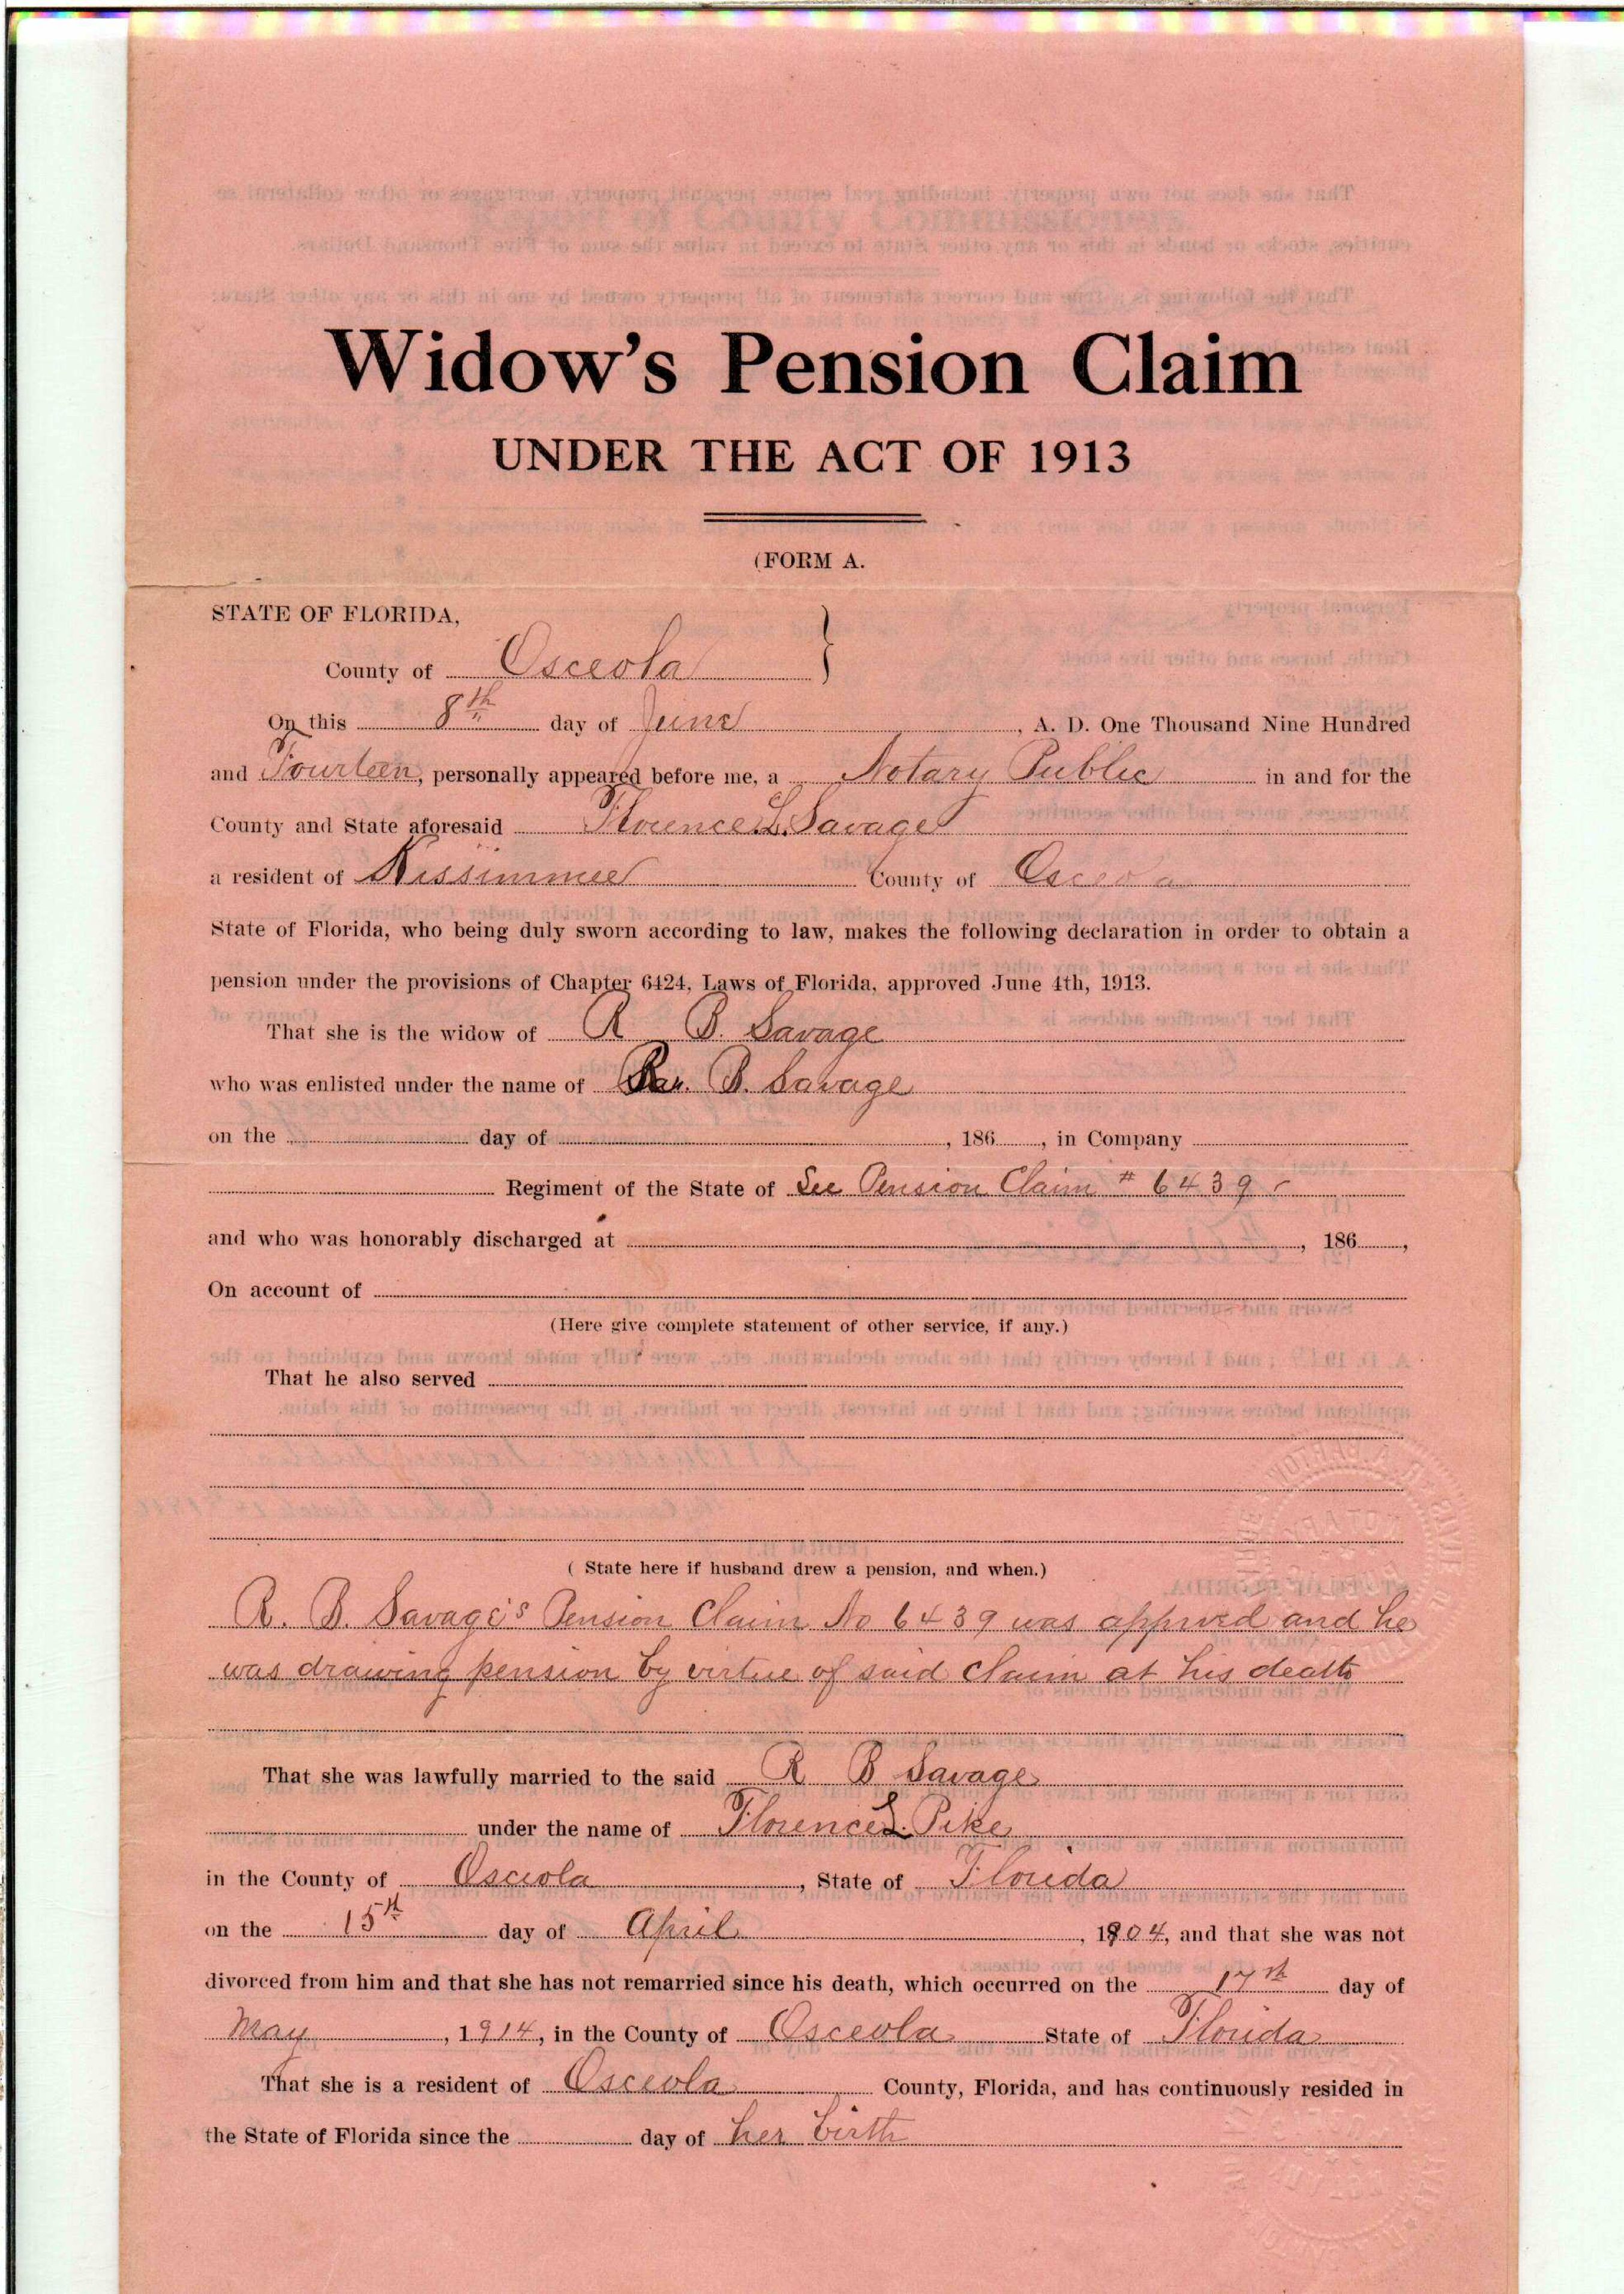 Widow's Pension Claim
UNDER THE ACT OF 1913
(FORM A.
STATE OF FLORIDA,
County of Osceola }
On this 8th day of June, A. D. One Thousand Nine Hundred
and Fourteen, personally appeared before me, a Notary Public in and for the
County and State aforesaid Florence L. Savage
a resident of Kissimmee County of Osceola
State of Florida, who being duly sworn according to law, makes the following declaration in order to obtain a
pension under the provisions of Chapter 6424, Laws of Florida, approved June 4th, 1913.
That she is the widow of R B. Savage
who was enlisted under the name of B. Savage
on the day of , 186 , in Company
Regiment of the State of See Pension Claim # 6439
and who was honorably discharged at , 186 ,
On account of
(Here give complete statement of other service, if any.)
That he also served
( State here if husband drew a pension, and when.)
R. B. Savage's Pension Claim No 6439 was apprved and he
was drawing pension by virtue of said claim at his death
That she was lawfully married to the said R B Savage
under the name of Florence L. Pike
in the County of Osceola, State of Florida
on the 15th day of April, 1904, and that she was not
divorced from him and that she has not remarried since his death, which occurred on the 17th day of
May, 1914, in the County of Osceola State of Florida
That she is a resident of Osceola County, Florida, and has continuously resided in
the State of Florida since the day of her birth